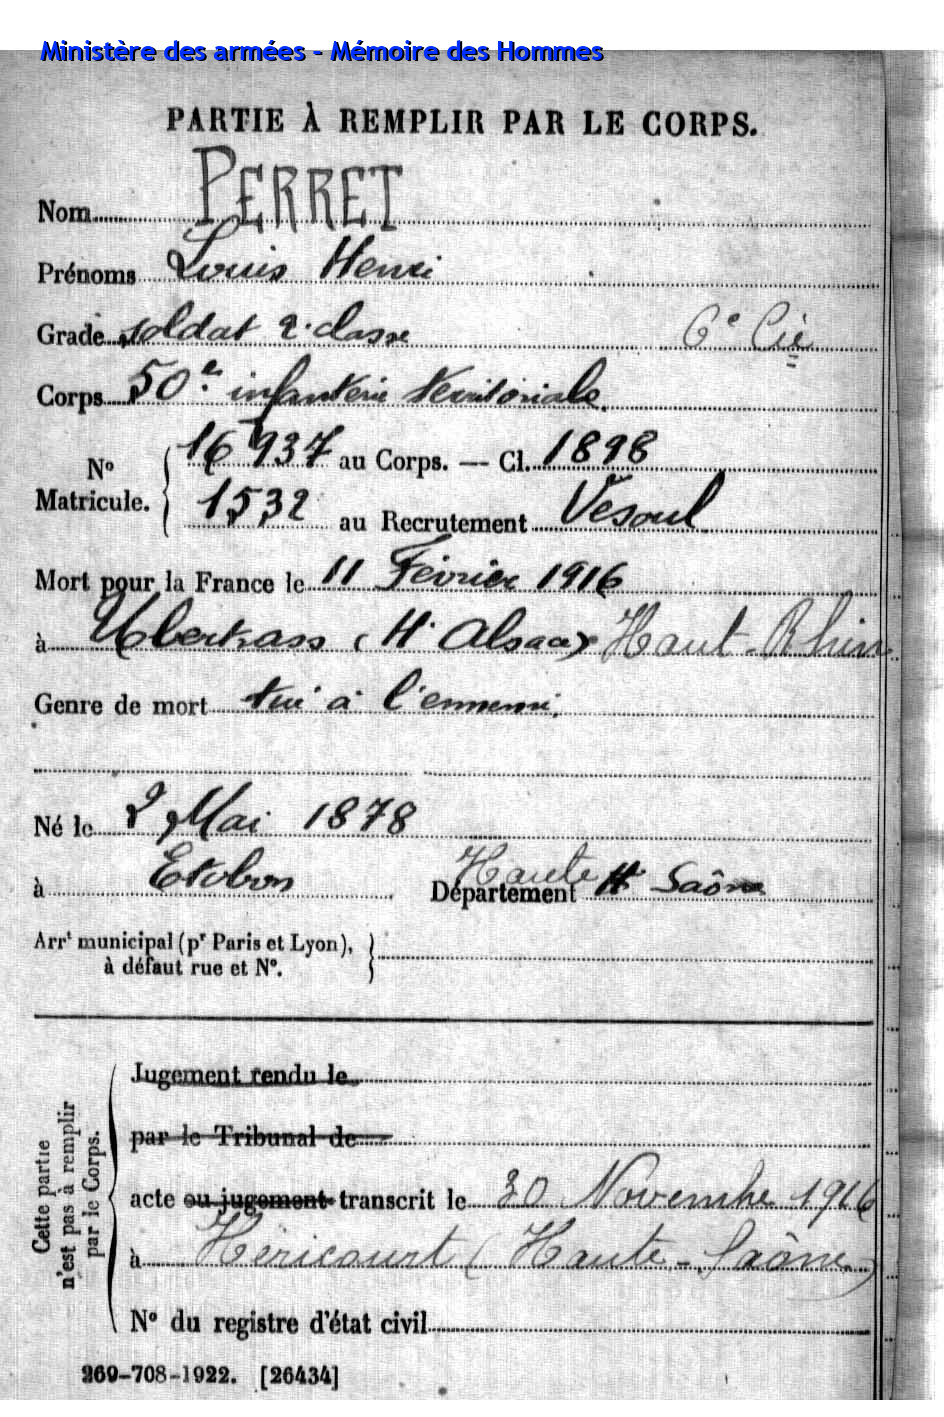 Ministère des armées - Mémoire des Hommes
PARTIE À REMPLIR PAR LE CORPS.
Nom PERRET
Prénoms Louis Henri
Grade soldat 2e classe 6e Cie
Corps 50e infanterie territoriale
No Matricule. { 16937 au Corps. — Cl. 1898
1532 au Recrutement Vesoul
Mort pour la France le 11 Février 1916
à Uberkass (Hte Alsace) Haut-Rhin
Genre de mort tué à l'ennemi.
Né le 2 Mai 1878
à Etobon Département Haute Hte Saône
Arrt municipal (pr Paris et Lyon),
à défaut rue et No. }
Cette partie
n'est pas à remplir
par le Corps.
Jugement rendu le
par le Tribunal de
acte ou jugement transcrit le 30 Novembre 1916
à Héricourt (Haute-Saône)
No du registre d'état civil
269-708-1922. [26434]